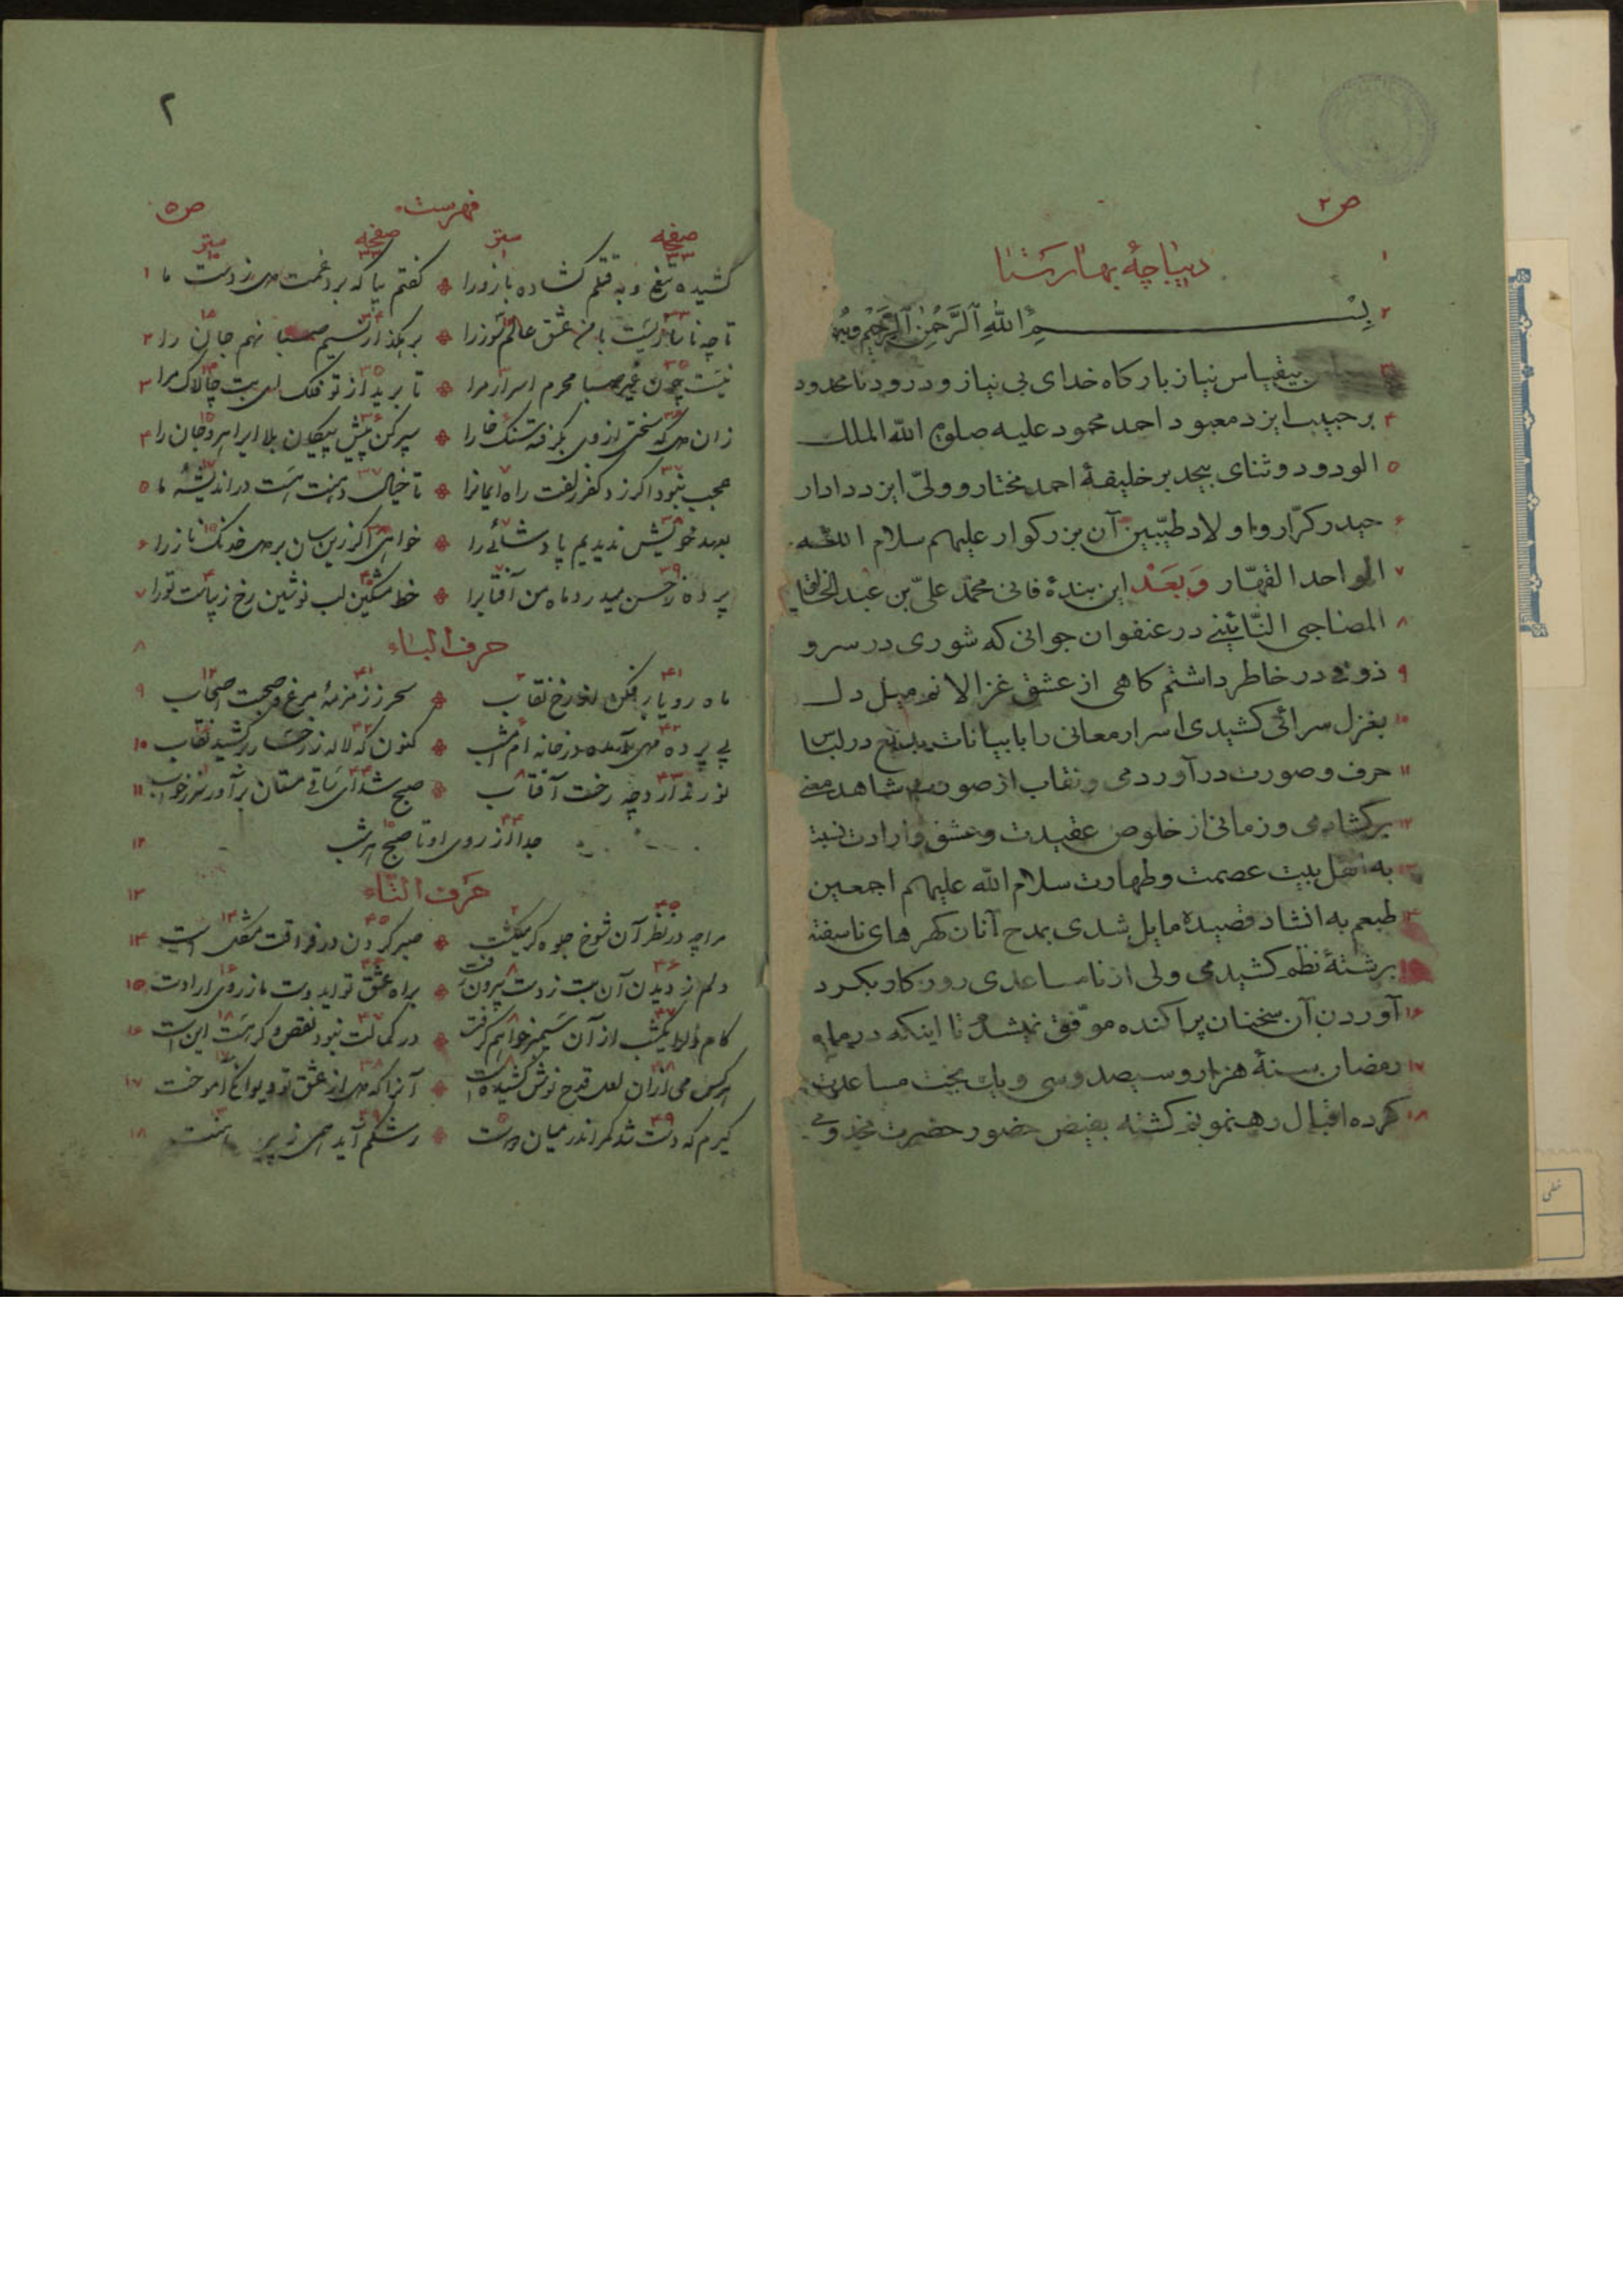 ص ۲
۱ دیباچهٔ بهارستان
۲ بسم الله الرحمن الرحیم
۳ بیقیاس نیاز بارکاه خدای بی نیاز و درود نامحدود
۴ بر حبیب ایزد معبود احمد محمود علیه صلوة الله الملک
۵ الودود و ثنای بیحد بر خلیفهٔ احمد مختار و ولیّ ایزد دادار
۶ حیدر کرّار و اولاد طیّبین آن بزرکوار علیهم سلام الله
۷ الواحد القهّار وَبَعَدْ این بندهٔ فانی محمّد علیّ بن عبدالخالق
۸ المصاحبی النّائینی در عنفوان جوانی که شوری در سر و
۹ ذوقی در خاطر داشتم کاهی از عشق غزالانم میل دل
۱۰ بغزل سرائی کشیدی اسرار معانی را با بیانات بدیع در لباس
۱۱ حرف و صورت در آوردمی و نقاب از صورت شاهد معنی
۱۲ برکشادمی و زمانی از خلوص عقیدت و عشق و ارادت نسبت
۱۳ به اهل بیت عصمت و طهارت سلام الله علیهم اجمعین
۱۴ طبعم به انشاد قصیدهٔ مایل شدی بمدح آنان کهرهای ناسفته
۱۵ برشتهٔ نظم کشیدمی ولی از نامساعدی روزکار بکرد
۱۶ آوردن آن سخنان پراکنده موّفق نیشدم تا اینکه در ماه
۱۷ رمضان سنهٔ هزار و سیصد و سی و یک بخت مساعدت
۱۸ کرده اقبال رهنمونم کشته بفیض حضور حضرت
۲
فهرست ص ۵
صفحه سطر صفحه سطر
کشیده تیغ و به قتلم کشاده بازورا ❉ کفتم بیا که برد غمت دل ز دست ما ۱
تا چه ناسازیست با من عشق عالم سوزرا ❉ بر رهکذار نسیم صبا نهم جان را ۲
نیست چون غیر صبا محرم اسرار مرا ❉ تا برید از تو فلک ای بت چالاک مرا ۳
زان دل که سختی از وی بکرفته سنک خارا ❉ سپر کن پیش پیکان بلا ایدل سر و جان را ۴
عجب نبود اکر زد کفر زلفت راه ایمانرا ❉ تا خیال دهنت هست در اندیشهٔ ما ۵
بعهد خویش ندیدیم پادشائی را ❉ خواهی اکر زین سان بر دل خدنک نازرا ۶
پرده ز حسن میدرد ماه من آفتابرا ❉ خط مشکین لب نوشین رخ زیباست تورا ۷
حرف الباء ۸
ماه رویا برفکن از رخ نقاب ❉ سحر ز زمزمهٔ مرغ و صحبت اصحاب ۹
بی پرده مهی آمده در خانه ام امشب ❉ کنون که لاله ز رخسار برکشید نقاب ۱۰
نور ندارد چه رخت آفتاب ❉ صبح شد ای ساقی مستان برآور سر ز خواب ۱۱
جدا از روی او تا صبح هر شب ۱۲
حرف التّاء ۱۳
مرا چه در نظر آن شوخ جلوه کر بکذشت ❉ صبر کردن در فراقت مشکل است ۱۴
دلم ز دیدن آن بت ز دست بیرون رفت ❉ براه عشق تو ایدوست ما ز روی ارادت ۱۵
کام دلرا یکشب از آن سیمبر خواهم کرفت ❉ در کمالت نبود نقص و کر هست این است ۱۶
هر کس می از آن لعل قدح نوش کشیده است ❉ آنرا که دل از عشق تو دیوانکی آموخت ۱۷
کیرم که دست شد کمر اندر میان دوست ❉ رشکم آید همی ز پیرهنت ۱۸
خطی